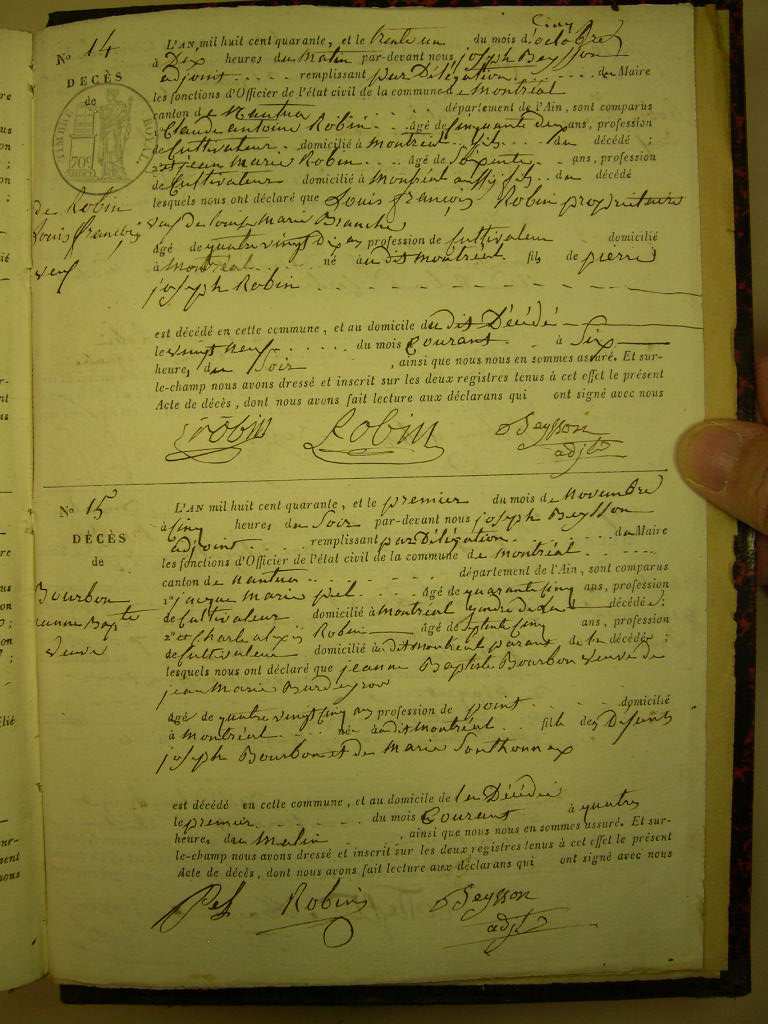 Cinq
N° 14
L'AN, mil huit cent quarante, et le trente un du mois d'octobre
à Dix heures du Matin par-devant nous joseph Beysson
DÉCÈS
adjoint remplissant par Délégation du Maire
de
les fonctions d'Officier de l'état civil de la commune de Montréal
canton de Nantua département de l'Ain, sont comparus
TIMBRE ROYAL
1° Claude antoine Robin âgé de Cinquante deux ans, profession
de Cultivateur domicilié à Montréal fils du décédé ;
2° et jean Marie Robin âgé de Soixante ans, profession
de Cultivateur domicilié à Montréal aussi fils du décédé
de Robin
Louis françois
veuf
lesquels nous ont déclaré que Louis françois Robin propriétaire
veuf de Marie Branche
âgé de quatre vingt dix ans profession de Cultivateur domicilié
à Montréal né au dit Montréal fils de pierre
joseph Robin
est décédé en cette commune, et au domicile du dit Décédé
le vingt neuf du mois Courant à Six
heures du Soir , ainsi que nous nous en sommes assuré. Et sur-
le-champ nous avons dressé et inscrit sur les deux registres tenus à cet effet le présent
Acte de décès, dont nous avons fait lecture aux déclarans qui ont signé avec nous
Robin Robin Beysson
adjt
N° 15
L'AN mil huit cent quarante, et le premier du mois de Novembre
à Cinq heures du Soir par-devant nous joseph Beysson
DÉCÈS
adjoint remplissant par Délégation du Maire
de
les fonctions d'Officier de l'état civil de la commune de Montréal
canton de Nantua département de l'Ain, sont comparus
Bourbon
jeanne Bapte
veuve
1° jacque Marie pel âgé de quarante cinq ans, profession
de Cultivateur domicilié à Montréal gendre de la décédée ;
2° et Charle alexis Robin âgé de Septente Cinq ans, profession
de Cultivateur domicilié à dit Montréal parent de la décédée ;
lesquels nous ont déclaré que jeanne Baptiste Bourbon veuve de
jean Marie
âgé de quatre vingt cinq ans profession de point domicilié
à Montréal née au dit Montréal fille des Défunts
joseph Bourbon et de Marie Sonthonnax
est décédé en cette commune, et au domicile de la Décédée
le premier du mois Courant à quatre
heures du Matin , ainsi que nous nous en sommes assuré. Et sur-
le-champ nous avons dressé et inscrit sur les deux registres tenus à cet effet le présent
Acte de décès, dont nous avons fait lecture aux déclarans qui ont signé avec nous
Pel Robin Beysson
adjt